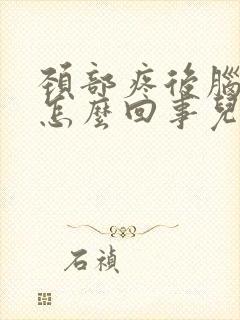 頚部疼後腦
怎麼回事兒
石禎